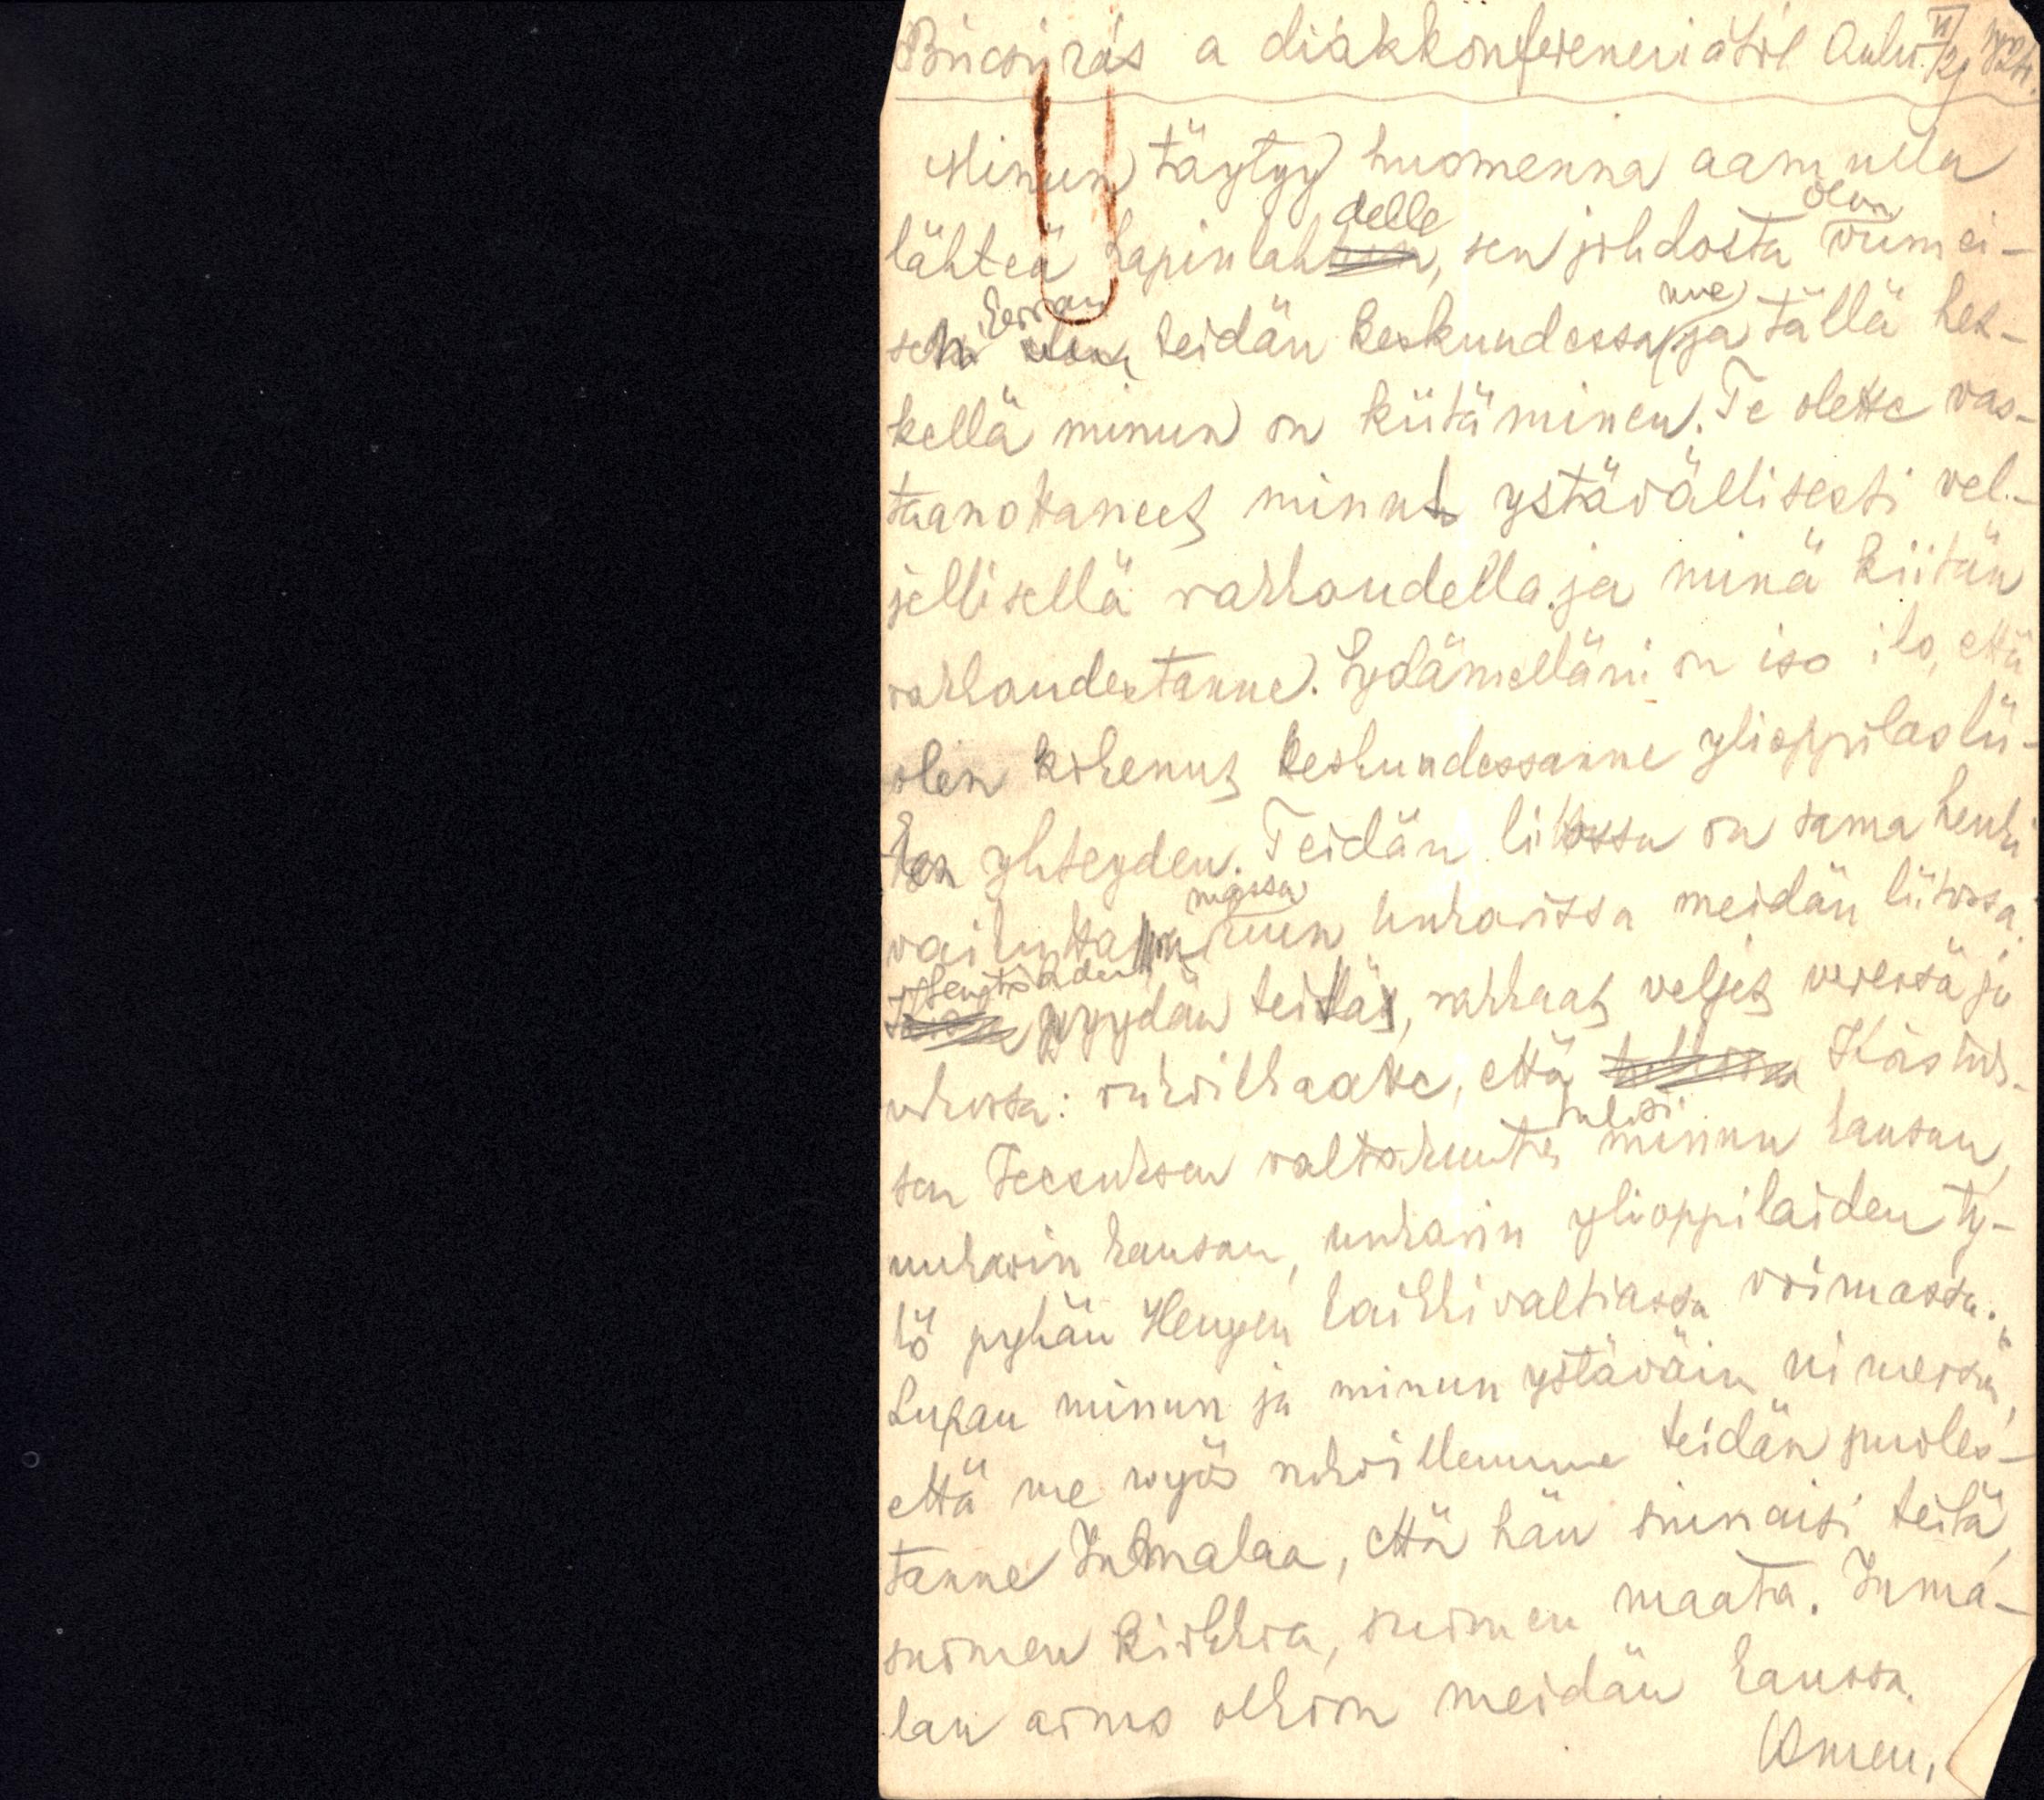 Búcsúzás a diákkonferenciától Oulu. VI/29
Minun täytyy huomenna aamulla
lähteä Lapinlahdelle, sen johdosta olen viimei-
sen kerran teidän keskuudessanne ja tällä het-
kellä minun on kiitäminen. Te olette vas-
taanottaneet minut ystävällisesti vel-
jellisellä rakkaudella ja minä kiitän
rakkaudestanne. Sydämelläni on iso ilo, että
olen kokenut keskuudessanne ylioppilaslii-
ton yhteyden. Teidän liitossa on sama henki
vaikuttamassa kuin Unkarissa meidän liitossa.
pyydän teitä, rakkaat veljet veressä ja
uskossa: rukoilkaatte, että Kristuk-
sen Jeesuksen valtakunta tulisi minun kansan,
unkarin kansan, unkarin ylioppilaiden ty-
kö pyhän Hengen kaikkivaltiassa voimassa.
Lupan minun ja minun ystäväin nimessä,
että me myös rukoillemme teidän puoles-
tanne Jumalaa, että hän siunaisi teitä,
suomen kirkkoa, suomen maata. Juma-
lan armo olkoon meidän kanssa.
Amen.